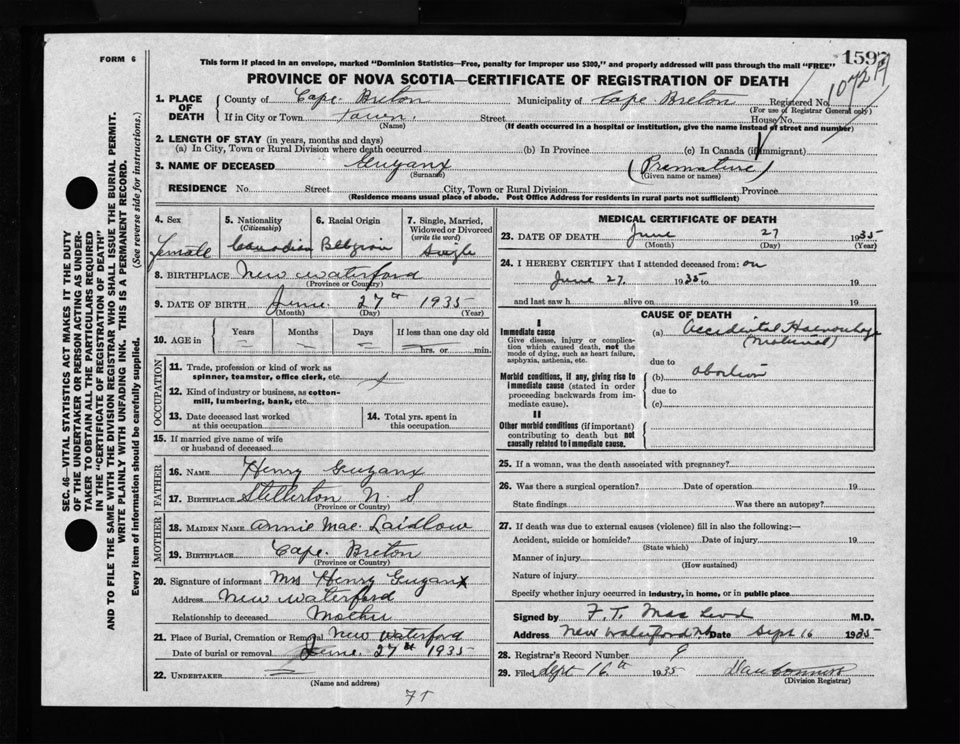 FORM 6
This form if placed in an envelope, marked "Dominion Statistics—Free, penalty for improper use $300," and properly addressed will pass through the mail "FREE"
159
1072
PROVINCE OF NOVA SCOTIA—CERTIFICATE OF REGISTRATION OF DEATH
1. PLACE OF DEATH
County of Cape Breton Municipality of Cape Breton Registered No.
(For use of Registrar General only)
If in City or Town Town. Street House No.
(Name) (If death occurred in a hospital or institution, give the name instead of street and number)
2. LENGTH OF STAY (in years, months and days)
(a) In City, Town or Rural Division where death occurred (b) In Province (c) In Canada (if immigrant)
3. NAME OF DECEASED Guzanx (Premature)
(Surname) (Given name or names)
RESIDENCE No. Street City, Town or Rural Division Province
(Residence means usual place of abode. Post Office Address for residents in rural parts not sufficient)
SEC. 46—VITAL STATISTICS ACT MAKES IT THE DUTY
OF THE UNDERTAKER OR PERSON ACTING AS UNDER-
TAKER TO OBTAIN ALL THE PARTICULARS REQUIRED
IN THE "CERTIFICATE OF REGISTRATION OF DEATH"
AND TO FILE THE SAME WITH THE DIVISION REGISTRAR WHO SHALL ISSUE THE BURIAL PERMIT.
WRITE PLAINLY WITH UNFADING INK. THIS IS A PERMANENT RECORD.
Every item of information should be carefully supplied. (See reverse side for instructions.)
4. Sex 5. Nationality (Citizenship) 6. Racial Origin 7. Single, Married, Widowed or Divorced (write the word)
Female Canadian Belgian Single
8. BIRTHPLACE New Waterford
(Province or Country)
9. DATE OF BIRTH June 27th 1935
(Month) (Day) (Year)
10. AGE in Years Months Days If less than one day old
hrs. or min.
OCCUPATION
11. Trade, profession or kind of work as
spinner, teamster, office clerk, etc.
12. Kind of industry or business, as cotton-
mill, lumbering, bank, etc.
13. Date deceased last worked at this occupation 14. Total yrs. spent in this occupation
15. If married give name of wife
or husband of deceased
FATHER
16. NAME Henry Guzanx
17. BIRTHPLACE Stellerton N. S
(Province or Country)
MOTHER
18. MAIDEN NAME Annie Mae. Laidlow
19. BIRTHPLACE Cape. Breton
(Province or Country)
20. Signature of informant Mrs Henry Guzanx
Address New Waterford
Relationship to deceased Mother
21. Place of Burial, Cremation or Removal New Waterford
Date of burial or removal June. 27th 1935
22. UNDERTAKER
(Name and address)
MEDICAL CERTIFICATE OF DEATH
23. DATE OF DEATH June 27 1935
(Month) (Day) (Year)
24. I HEREBY CERTIFY that I attended deceased from: on
June 27, 1935 to 19
and last saw h alive on 19
CAUSE OF DEATH
I
Immediate cause
Give disease, injury or complica-
tion which caused death, not the
mode of dying, such as heart failure,
asphyxia, asthenia, etc.
(a) Accidental Haemorrhage
(Maternal)
due to
Morbid conditions, if any, giving rise to
immediate cause (stated in order
proceeding backwards from im-
mediate cause).
(b) abortion
due to
(c)
II
Other morbid conditions (if important)
contributing to death but not
causally related to immediate cause.
25. If a woman, was the death associated with pregnancy?
26. Was there a surgical operation? Date of operation 19
State findings Was there an autopsy?
27. If death was due to external causes (violence) fill in also the following:—
Accident, suicide or homicide? Date of injury 19
(State which)
Manner of injury
(How sustained)
Nature of injury
Specify whether injury occurred in industry, in home, or in public place
Signed by F. T. MacLeod M.D.
Address New Waterford NS Date Sept 16 1935
28. Registrar's Record Number 9
29. Filed Sept 16th 1935
(Division Registrar)